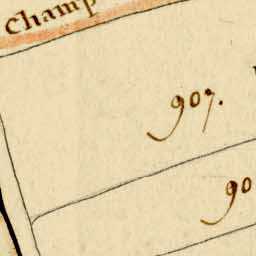 Champ
907.
90